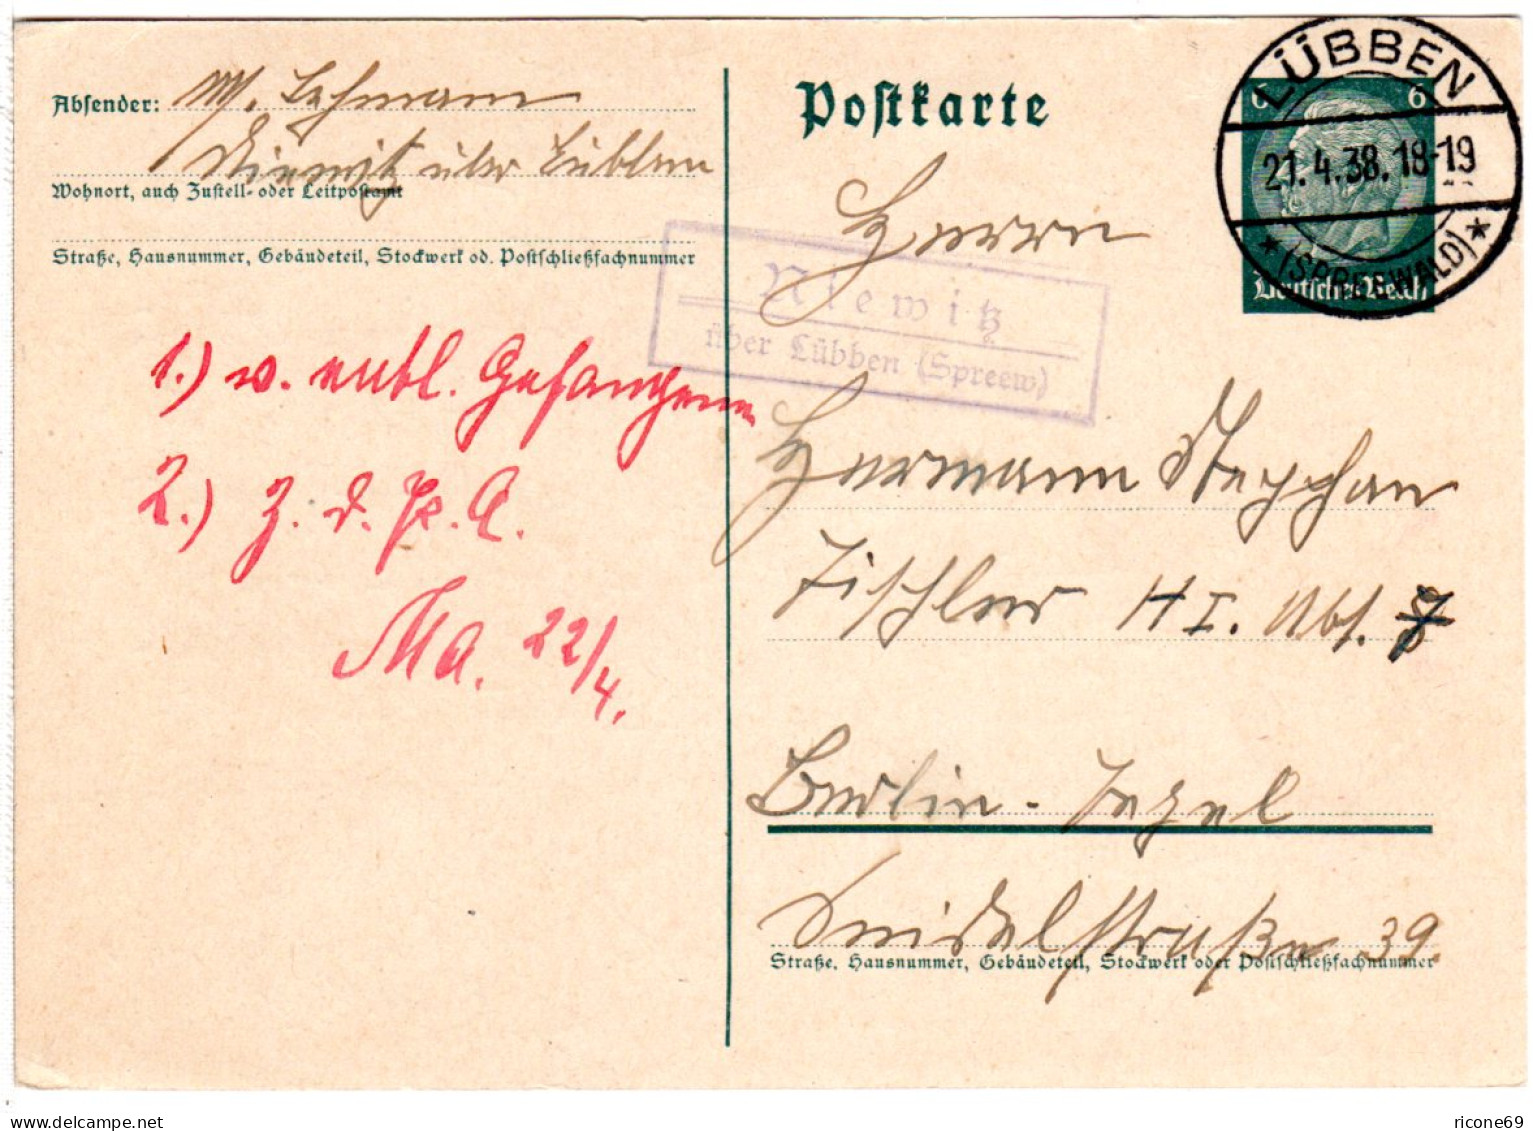 Absender: W. Lehmann
Niewitz über Lübben
Wohnort, auch Zustell- oder Leitpostamt
Straße, Hausnummer, Gebäudeteil, Stockwerk od. Postschließfachnummer
Postkarte
6 6
Deutsches Reich
LÜBBEN
21.4.38.18-19
(SPREEWALD)
Niewitz
über Lübben (Spreew)
1.) v. entl. Gefangenen
2.) Z. d. P. A.
Ma. 22/4.
Herrn
Hermann Stepphan
Tischler H I. Abt. 7
Berlin-Tegel
Seidelstraße 39.
Straße, Hausnummer, Gebäudeteil, Stockwerk oder Postschließfachnummer
delcampe.net
ricone69